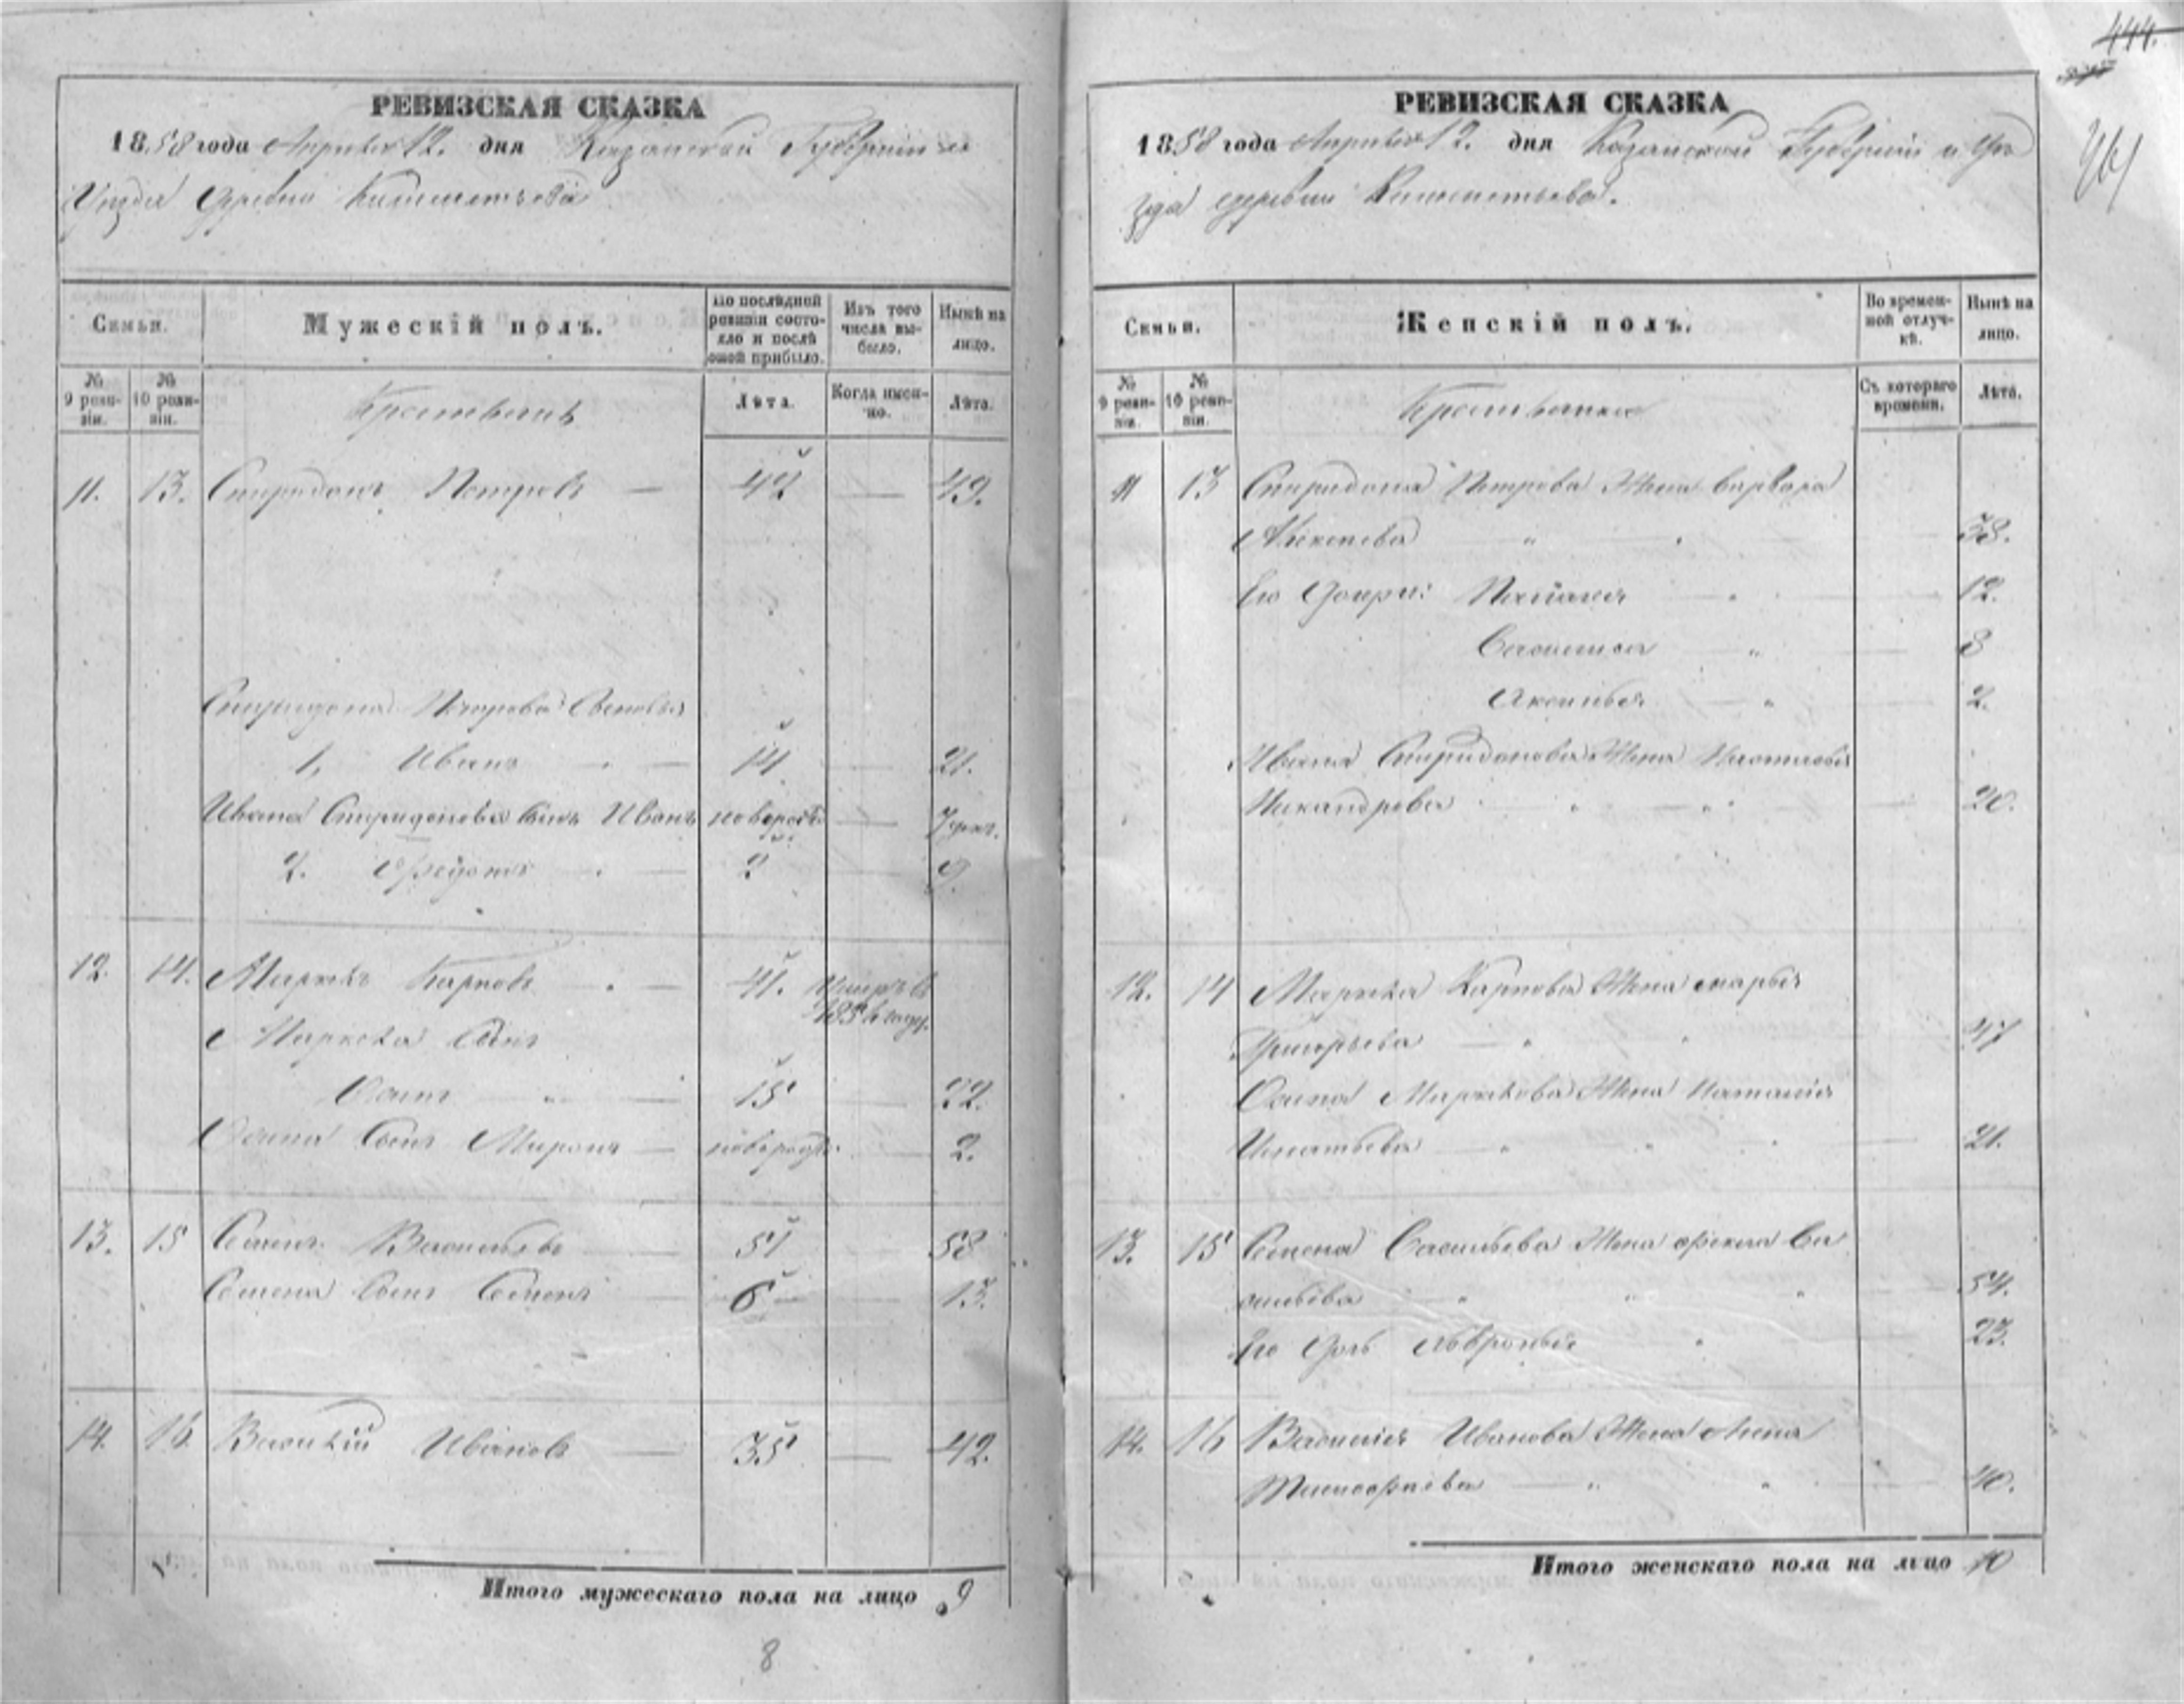 444.
РЕВИЗСКАЯ СКАЗКА
1858 года Апреля 12. дня Казанской Губернии и
Уезда деревни
Семьи.
Мужескій полъ.
По послѣдней ревизіи состояло и послѣ оной прибыло.
Изъ того числа выбыло.
Нынѣ на лицо.
№ 9 ревизіи.
№ 10 ревизіи.
Крестьянъ
Лѣта.
Когда именно.
Лѣта.
11. 13. Спиридонъ Петровъ — 42 — 49.
Спиридона Петрова Сыновья
1, Иванъ 14 — 21.
Ивана Спиридонова Сынъ Иванъ новорожд —
2. Федотъ 2 — 9.
12. 14. Маркелъ Карповъ 41. Умеръ въ
году.
Маркела Сынъ
Осипъ 15 — 22.
Осипа Сынъ Миронъ — новорожд. — 2.
13. 15 Семенъ Васильевъ 51 — 58
Семена Сынъ Семенъ 6 — 13.
14. 16 Василій Ивановъ — 35 — 42.
Итого мужескаго пола на лицо 9
8
РЕВИЗСКАЯ СКАЗКА
1858 года Апреля 12. дня Казанской Губерніи и Уе
зда деревни
Семьи.
Женскій полъ.
Во временной отлучкѣ.
Нынѣ на лицо.
№ 9 ревизіи.
№ 10 ревизіи.
Крестьянка
Съ котораго времени.
Лѣта.
11 13 Спиридона Петрова Жена Варвара
Алексеева 38.
Его Дочери: 12.
Василиса 8
Аксинья 2.
Ивана Спиридонова Жена Настасья
Никандрова 20.
12. 14 Маркела Карпова Жена Марья
Григорьева 47
Осипа Маркелова Жена Наталія
Игнатьева 21.
13. 15 Семена Васильева Жена Фекла Ва
сильева 54.
Его Дочь Афронья 23.
14. 16 Василія Иванова Жена Анна
Тимофеева 40.
Итого женскаго пола на лицо 10